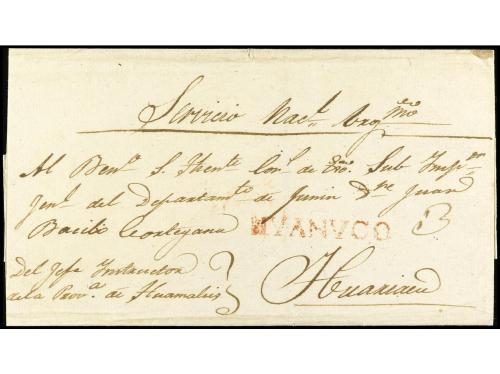 Servicio Nacl. Urgmo
Al Beno. S. Tente. Conl. de Exo. Sub Inspor.
Jenl. del Departamto. de Junin Dn. Juan
Bacilio Cortegana
HVANVCO
3
Del Jefe Instructor
de la Prova. de Huamalies
Huariaca